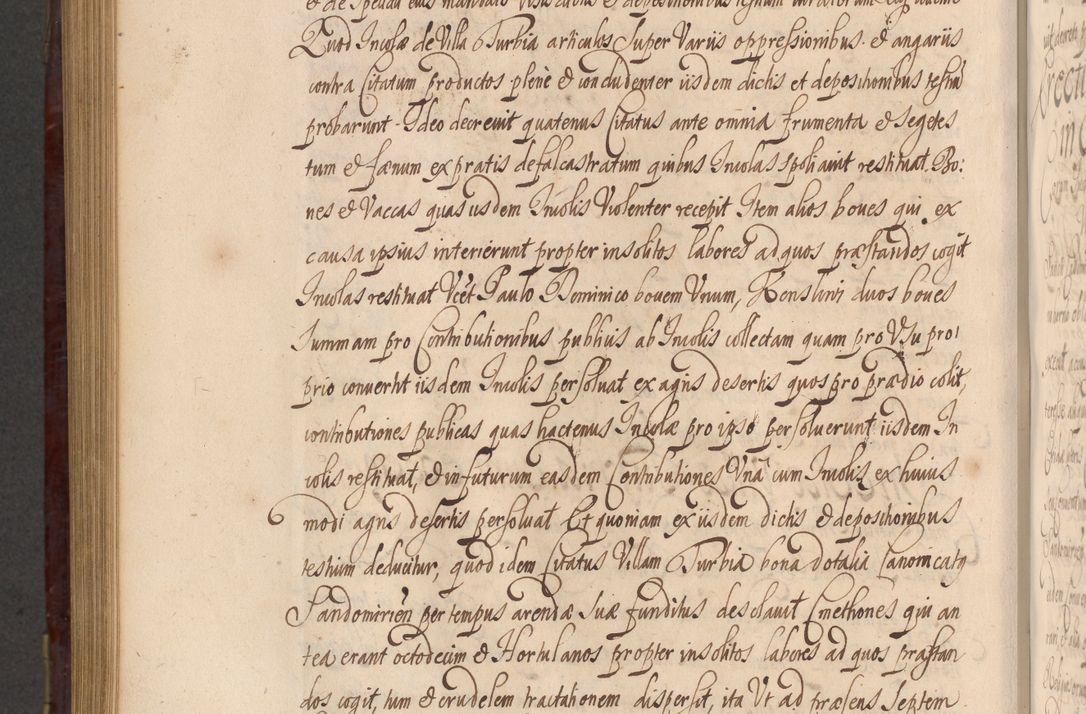 Quod Incolæ de Villa Turbia articulos Super Variis oppressionibus et angariis
contra Citatum productos plenè & concludenter iisdem dictis et depositionibus testiũ
probarunt. Ideo decrevit quatenus Citatus ante omnia frumenta & segetes
tum & fænum ex pratis defalcastratum quibus Incolas spoliavit restituat. Bo:
nes & Vaccas quas iisdem Incolis Violenter recepit Item alios boves qui ex
causa ipsius interierunt propter insolitos labores ad quos præstandos cogit
Incolas restituat Vcẽt Paulo Dominico bovem Vnum, Kenslini duos boves
Summam pro Contributionibus publicis ab Incolis collectam quam pro Vsu pro
prio convertit iisdem Incolis persolvat ex agris desertis quos pro prædio colit,
contributiones publicas quas hactenus Incolæ pro ipso persolverunt iisdem In
colis restituat, & in futurum easdem Contributiones Vnà cum Incolis ex huius
modi agris desertis persolvat Et quoniam ex iisdem dictis & depositionibus
testium deducitur, quod idem Citatus Villam Turbia bona dotalia Canonicatg
Sandomirien per tempus arendæ suæ funditus desolavit Cmethones qui an
tea erant octodecim & Hortulanos propter insolitos labores ad quos præstan
dos cogit, tum & crudelem tractationem dispersit, ita Vt ad præsens Septem